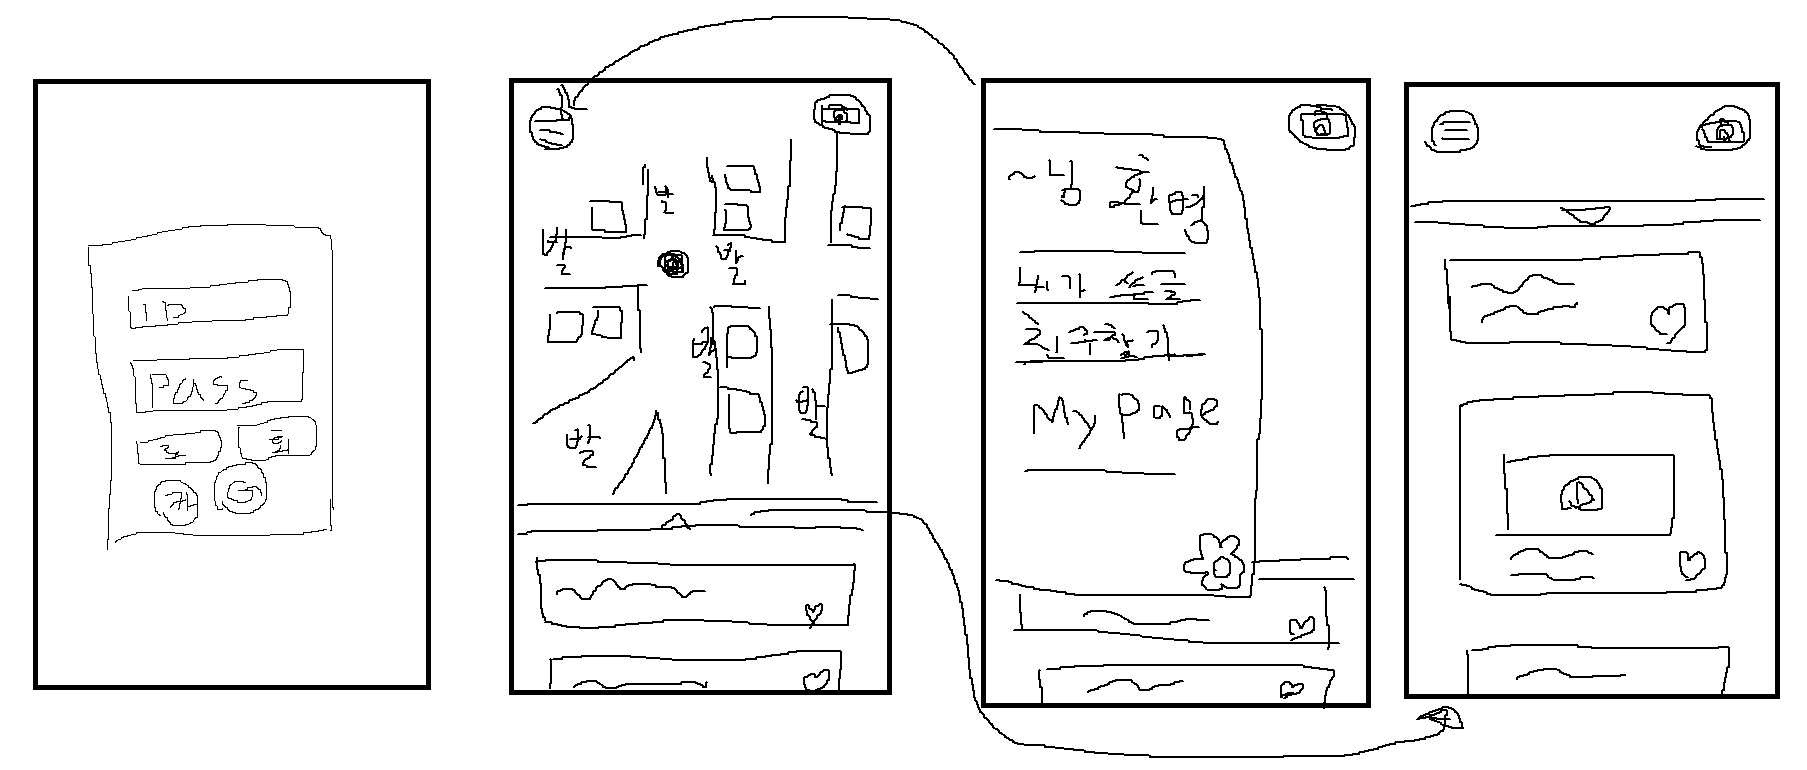 ID
Pass
로
회
카
G
발
발
발
발
발
발
~님 환영
내가 쓴글
친구찾기
My Page